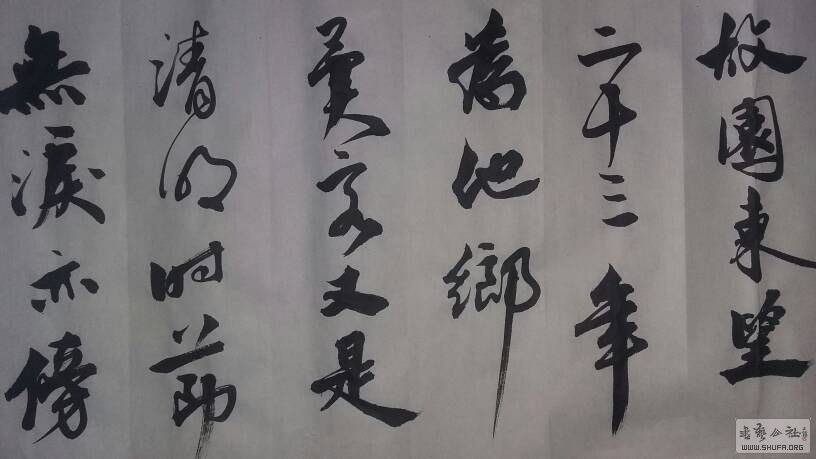 故園東望
二十三年
為他鄉
異客又是
清明时節
無淚亦傍
書藝公社
WWW.SHUFA.ORG